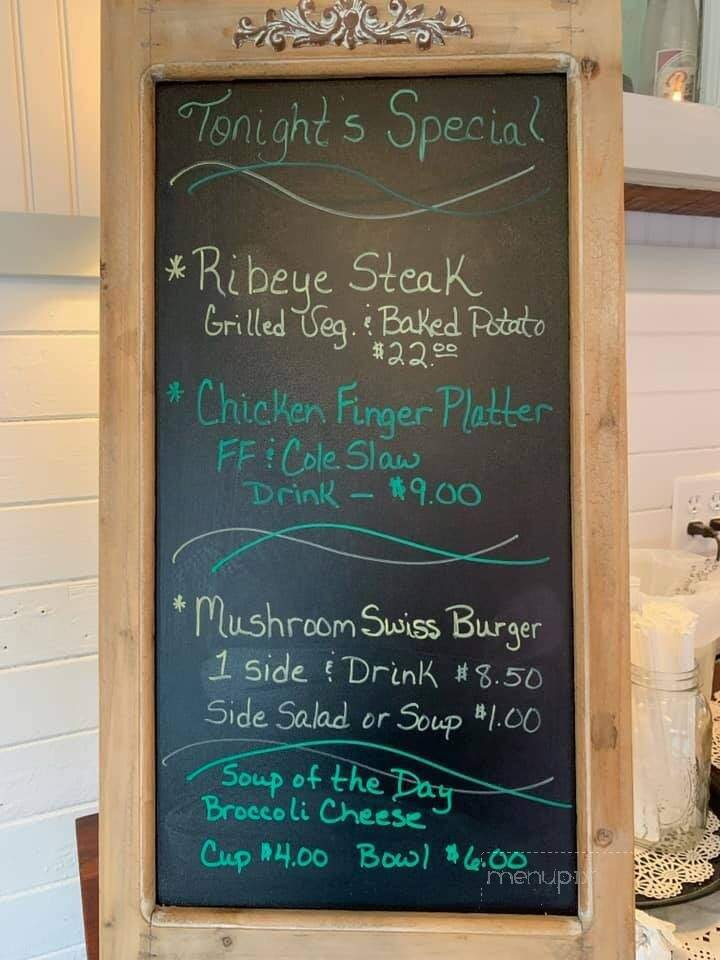 Tonight's Special
* Ribeye Steak
Grilled Veg. & Baked Potato
$22.00
* Chicken Finger Platter
FF & Cole Slaw
Drink — $9.00
* Mushroom Swiss Burger
1 side & Drink $8.50
Side Salad or Soup $1.00
Soup of the Day
Broccoli Cheese
Cup $4.00 Bowl $6.00
menupix